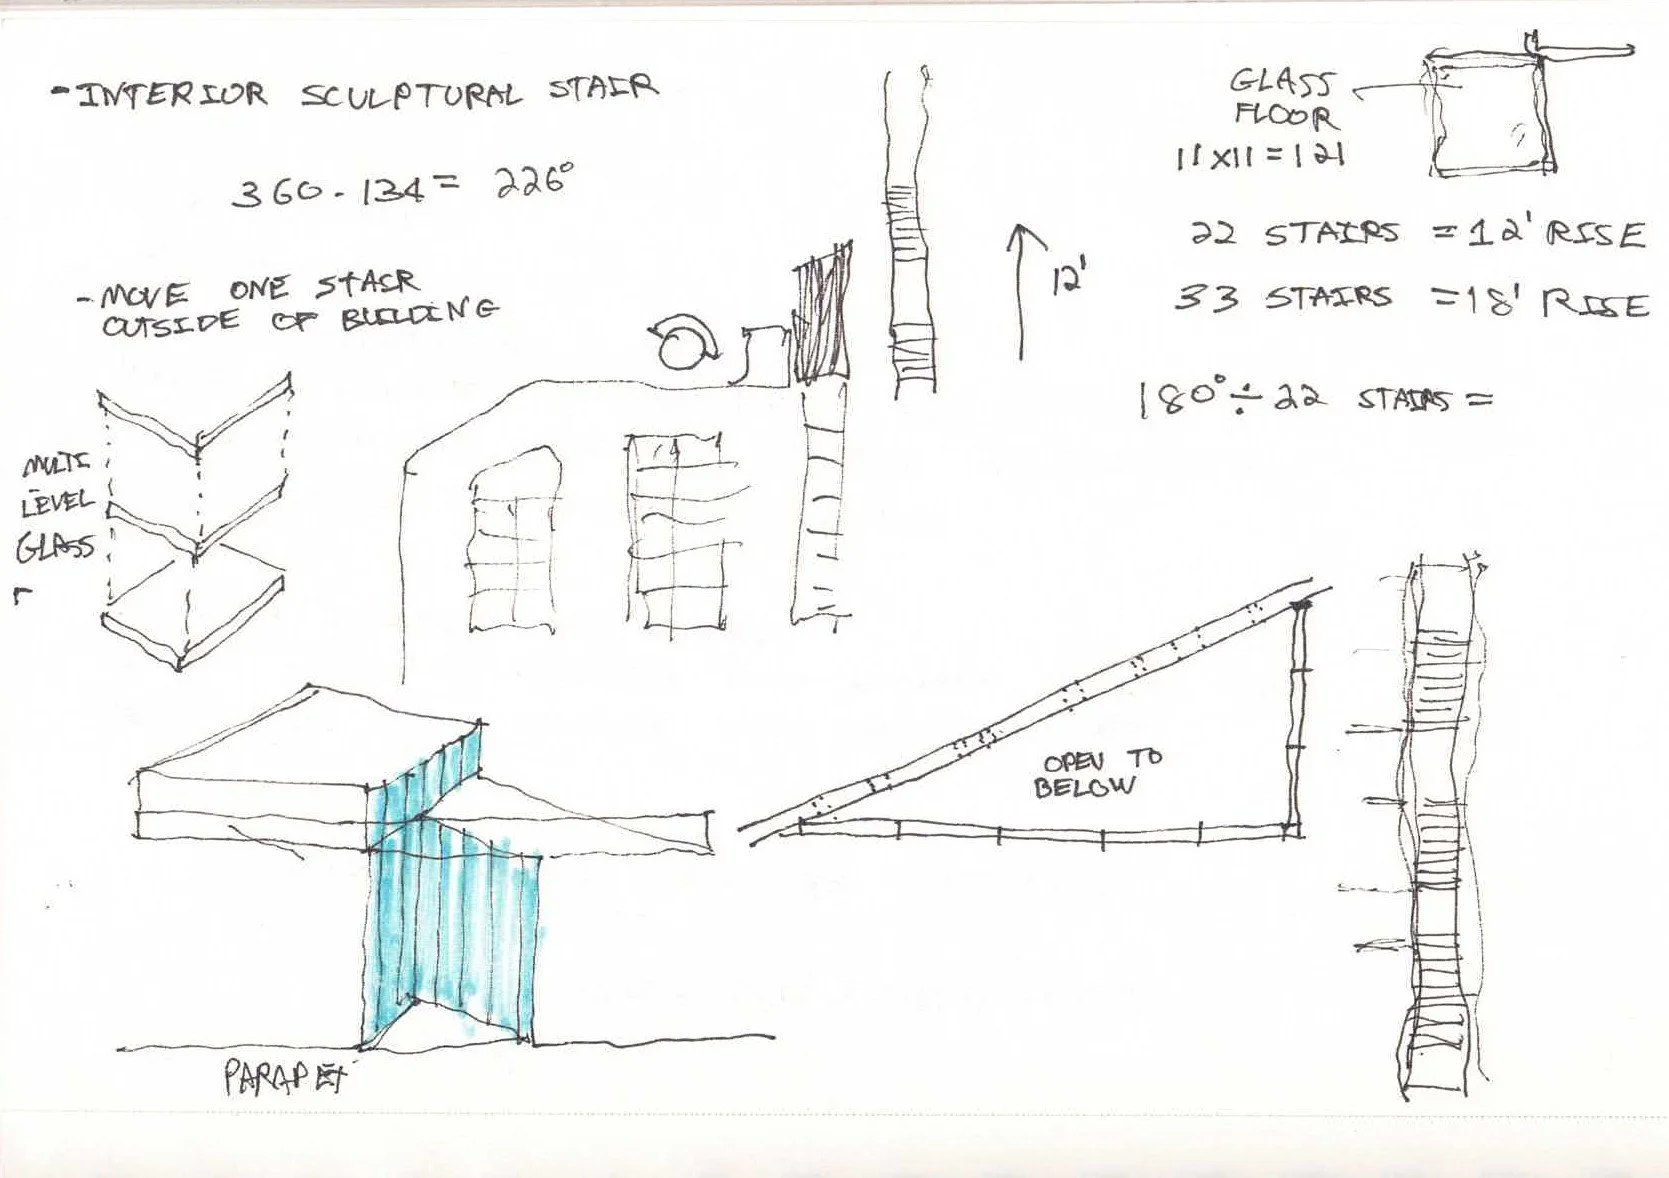 - INTERIOR SCULPTURAL STAIR
360 - 134 = 226°
- MOVE ONE STAIR
OUTSIDE OF BUILDING
MULTI
LEVEL
GLASS
12'
GLASS
FLOOR
11 x 11 = 121
22 STAIRS = 12' RISE
33 STAIRS = 18' RISE
180° ÷ 22 STAIRS =
OPEN TO
BELOW
PARAPET